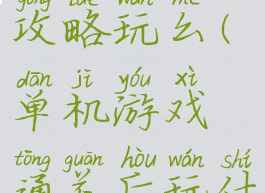 gōng lüè wán me
攻略玩么(
dān jī yóu xì
单机游戏
tōng guān hòu wán shí
通关后玩什